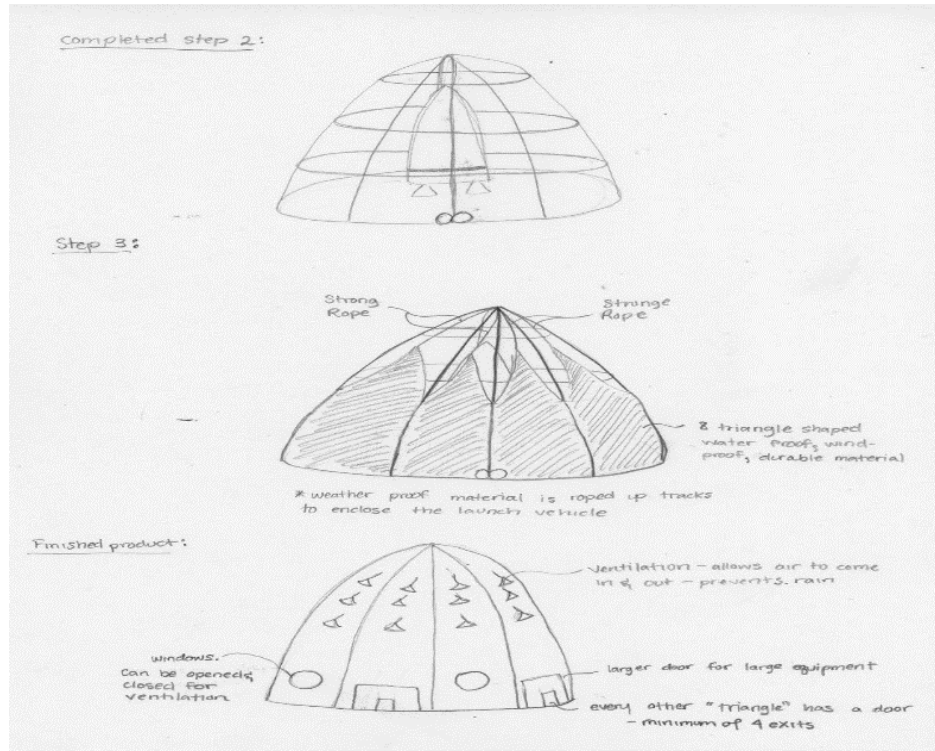 Completed step 2:
Step 3:
Strong
Rope
Strange
Rope
8 triangle shaped
water proof, wind-
proof, durable material
* weather proof material is roped up tracks
to enclose the launch vehicle
Finished product:
Ventilation - allows air to come
in & out - prevents rain
windows.
can be opened &
closed for
ventilation
larger door for large equipment
every other "triangle" has a door
- minimum of 4 exits